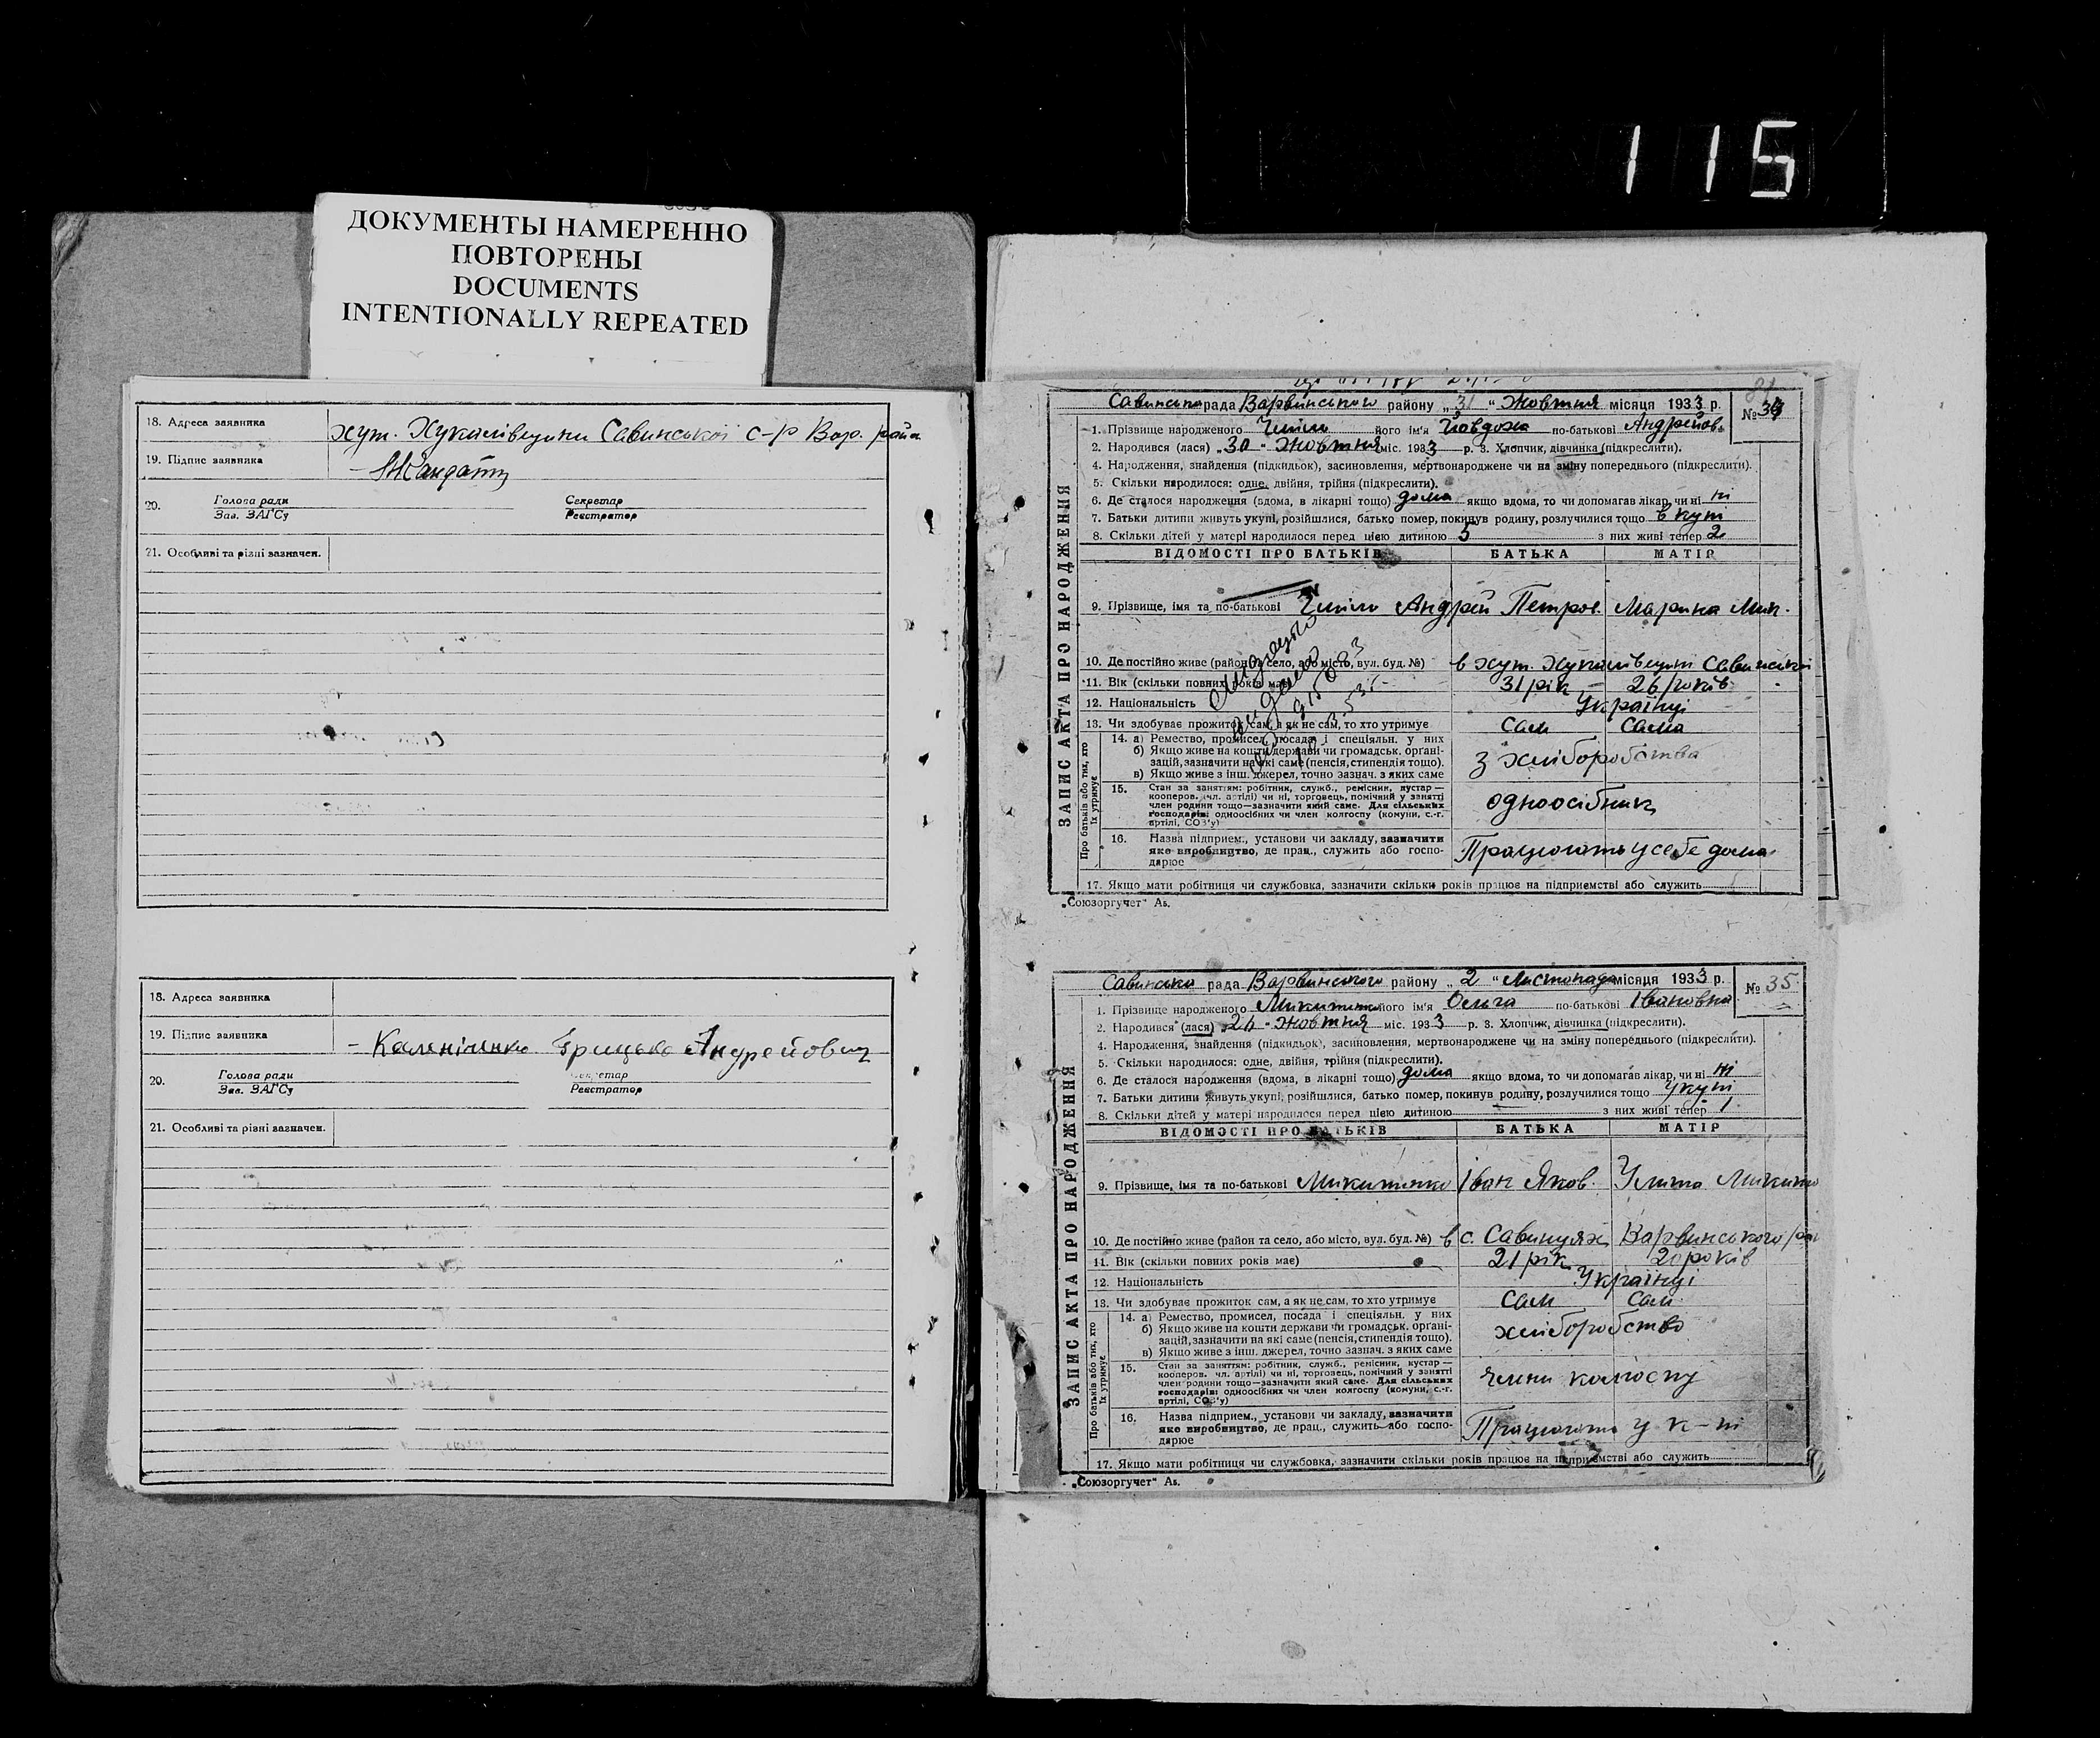 115
ДОКУМЕНТЫ НАМЕРЕННО
ПОВТОРЕНЫ
DOCUMENTS
INTENTIONALLY REPEATED
18. Адреса заявника
хут. Хукалівщини Савинської с-р Вар. район
19. Підпис заявника
20. Голова ради Секретар
Зав. ЗАГСу Реєстратор
21. Особливі та різні зазначен.
18. Адреса заявника
19. Підпис заявника
- Каленіченко Грицько Андрейович
20. Голова ради Секретар
Зав. ЗАГСу Реєстратор
21. Особливі та різні зазначен.
ЗАПИС АКТА ПРО НАРОДЖЕННЯ
Савинська рада Варвинського району „31“ Жовтня місяця 1933 р. № 34
1. Прізвище народженого його ім'я Йовдоха по-батькові Андрейов.
2. Народився (лася) „30“ Жовтня міс. 1933 р. 3. Хлопчик, дівчинка (підкреслити).
4. Народження, знайдення (підкидьок), засиновлення, мертвонароджене чи на зміну попереднього (підкреслити).
5. Скільки народилося: одне, двійня, трійня (підкреслити).
6. Де сталося народження (вдома, в лікарні тощо) дома якщо вдома, то чи допомагав лікар, чи ні ні
7. Батьки дитини живуть укупі, розійшлися, батько помер, покинув родину, розлучилися тощо в купі
8. Скільки дітей у матері народилося перед цією дитиною 5 з них живі тепер 2
ВІДОМОСТІ ПРО БАТЬКІВ БАТЬКА МАТІР
9. Прізвище, імя та по-батькові Андрій Петров. Марина Мик.
10. Де постійно живе (район та село, або місто, вул. буд. №) в хут. Хукалівщині Савинської
11. Вік (скільки повних років має) 31 рік 26 років
12. Національність Українці
13. Чи здобуває прожиток сам, а як не сам, то хто утримує Сам Сама
Про батьків або тих, хто їх утримує
14. а) Ремество, промисел, посада і спеціяльн. у них
б) Якщо живе на кошти держави чи громадськ. організацій, зазначити на які саме (пенсія, стипендія тощо).
в) Якщо живе з інш. джерел, точно зазнач. з яких саме
з хліборобства
15. Стан за заняттям: робітник, служб., ремісник, кустар—
кооперов. (чл. артілі) чи ні, торговець, помічний у занятті
член родини тощо—зазначити який саме. Для сільських
господарів: одноосібних чи член колгоспу (комуни, с.-г.
артілі, СОЗ'у)
одноосібник
16. Назва підприєм., установи чи закладу, зазначити
яке виробництво, де прац., служить або господарює
Працюють у себе дома
17. Якщо мати робітниця чи службовка, зазначити скільки років працює на підприємстві або служить
„Союзоргучет“ Ав.
ЗАПИС АКТА ПРО НАРОДЖЕННЯ
Савинська рада Варвинського району „2“ Листопада місяця 1933 р. № 35
1. Прізвище народженого Микитенко його ім'я Ольга по-батькові Івановна
2. Народився (лася) „26“ Жовтня міс. 1933 р. 3. Хлопчик, дівчинка (підкреслити).
4. Народження, знайдення (підкидьок), засиновлення, мертвонароджене чи на зміну попереднього (підкреслити).
5. Скільки народилося: одне, двійня, трійня (підкреслити).
6. Де сталося народження (вдома, в лікарні тощо) дома якщо вдома, то чи допомагав лікар, чи ні ні
7. Батьки дитини живуть укупі, розійшлися, батько помер, покинув родину, розлучилися тощо укупі
8. Скільки дітей у матері народилося перед цією дитиною — з них живі тепер 1
ВІДОМОСТІ ПРО БАТЬКІВ БАТЬКА МАТІР
9. Прізвище, імя та по-батькові Микитенко Іван Яков. Уляна
10. Де постійно живе (район та село, або місто, вул. буд. №) в с. Савинцях Варвинського рай
11. Вік (скільки повних років має) 21 рік 20 років
12. Національність Українці
13. Чи здобуває прожиток сам, а як не сам, то хто утримує Сам Сам
Про батьків або тих, хто їх утримує
14. а) Ремество, промисел, посада і спеціяльн. у них
б) Якщо живе на кошти держави чи громадськ. організацій, зазначити на які саме (пенсія, стипендія тощо).
в) Якщо живе з інш. джерел, точно зазнач. з яких саме
хліборобство
15. Стан за заняттям: робітник, служб., ремісник, кустар—
кооперов. чл. артілі) чи ні, торговець, помічний у занятті
член родини тощо—зазначити який саме. Для сільських
господарів: одноосібних чи член колгоспу (комуни, с.-г.
артілі, СОЗ'у)
члени колгоспу
16. Назва підприєм., установи чи закладу, зазначити
яке виробництво, де прац., служить або господарює
Працюють у к-пі
17. Якщо мати робітниця чи службовка, зазначити скільки років працює на підприємстві або служить
„Союзоргучет“ Ав.